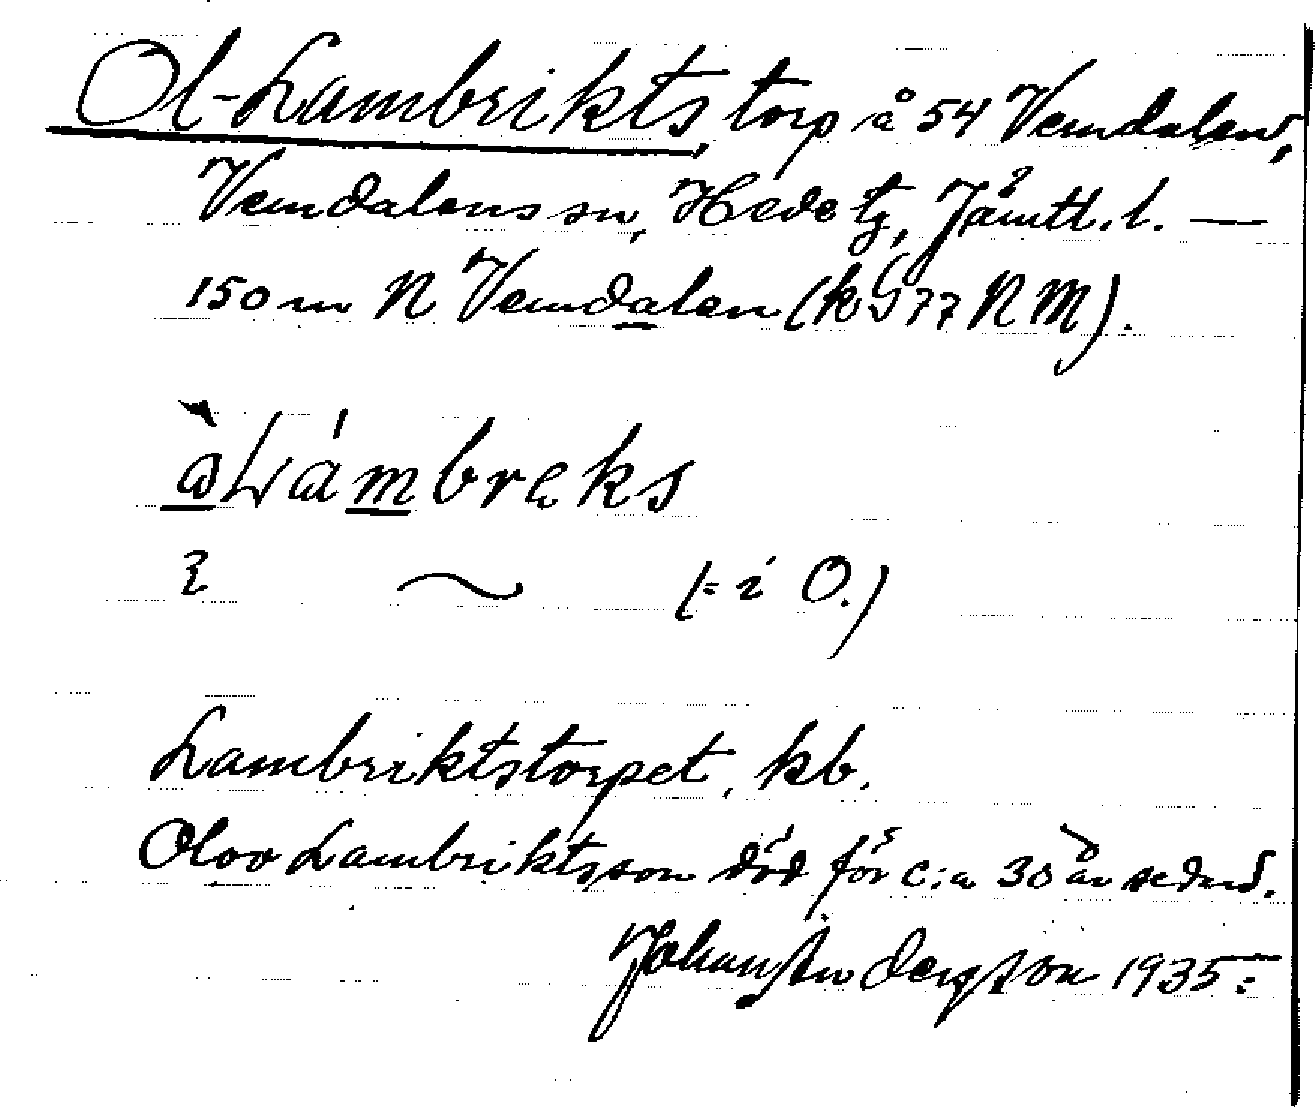 Ol-Lambrikts, torp å 54 Vemdalen,
Vemdalens sn, Hede tg, Jämtl. l. —
150 m N Vemdalen (kG77 NM).
àLámbreks
~ (= i O.)
Lambriktstorpet, kb.
Olov Lambriktsson död för c:a 30 år sedan.
Johans Anderson 1935.